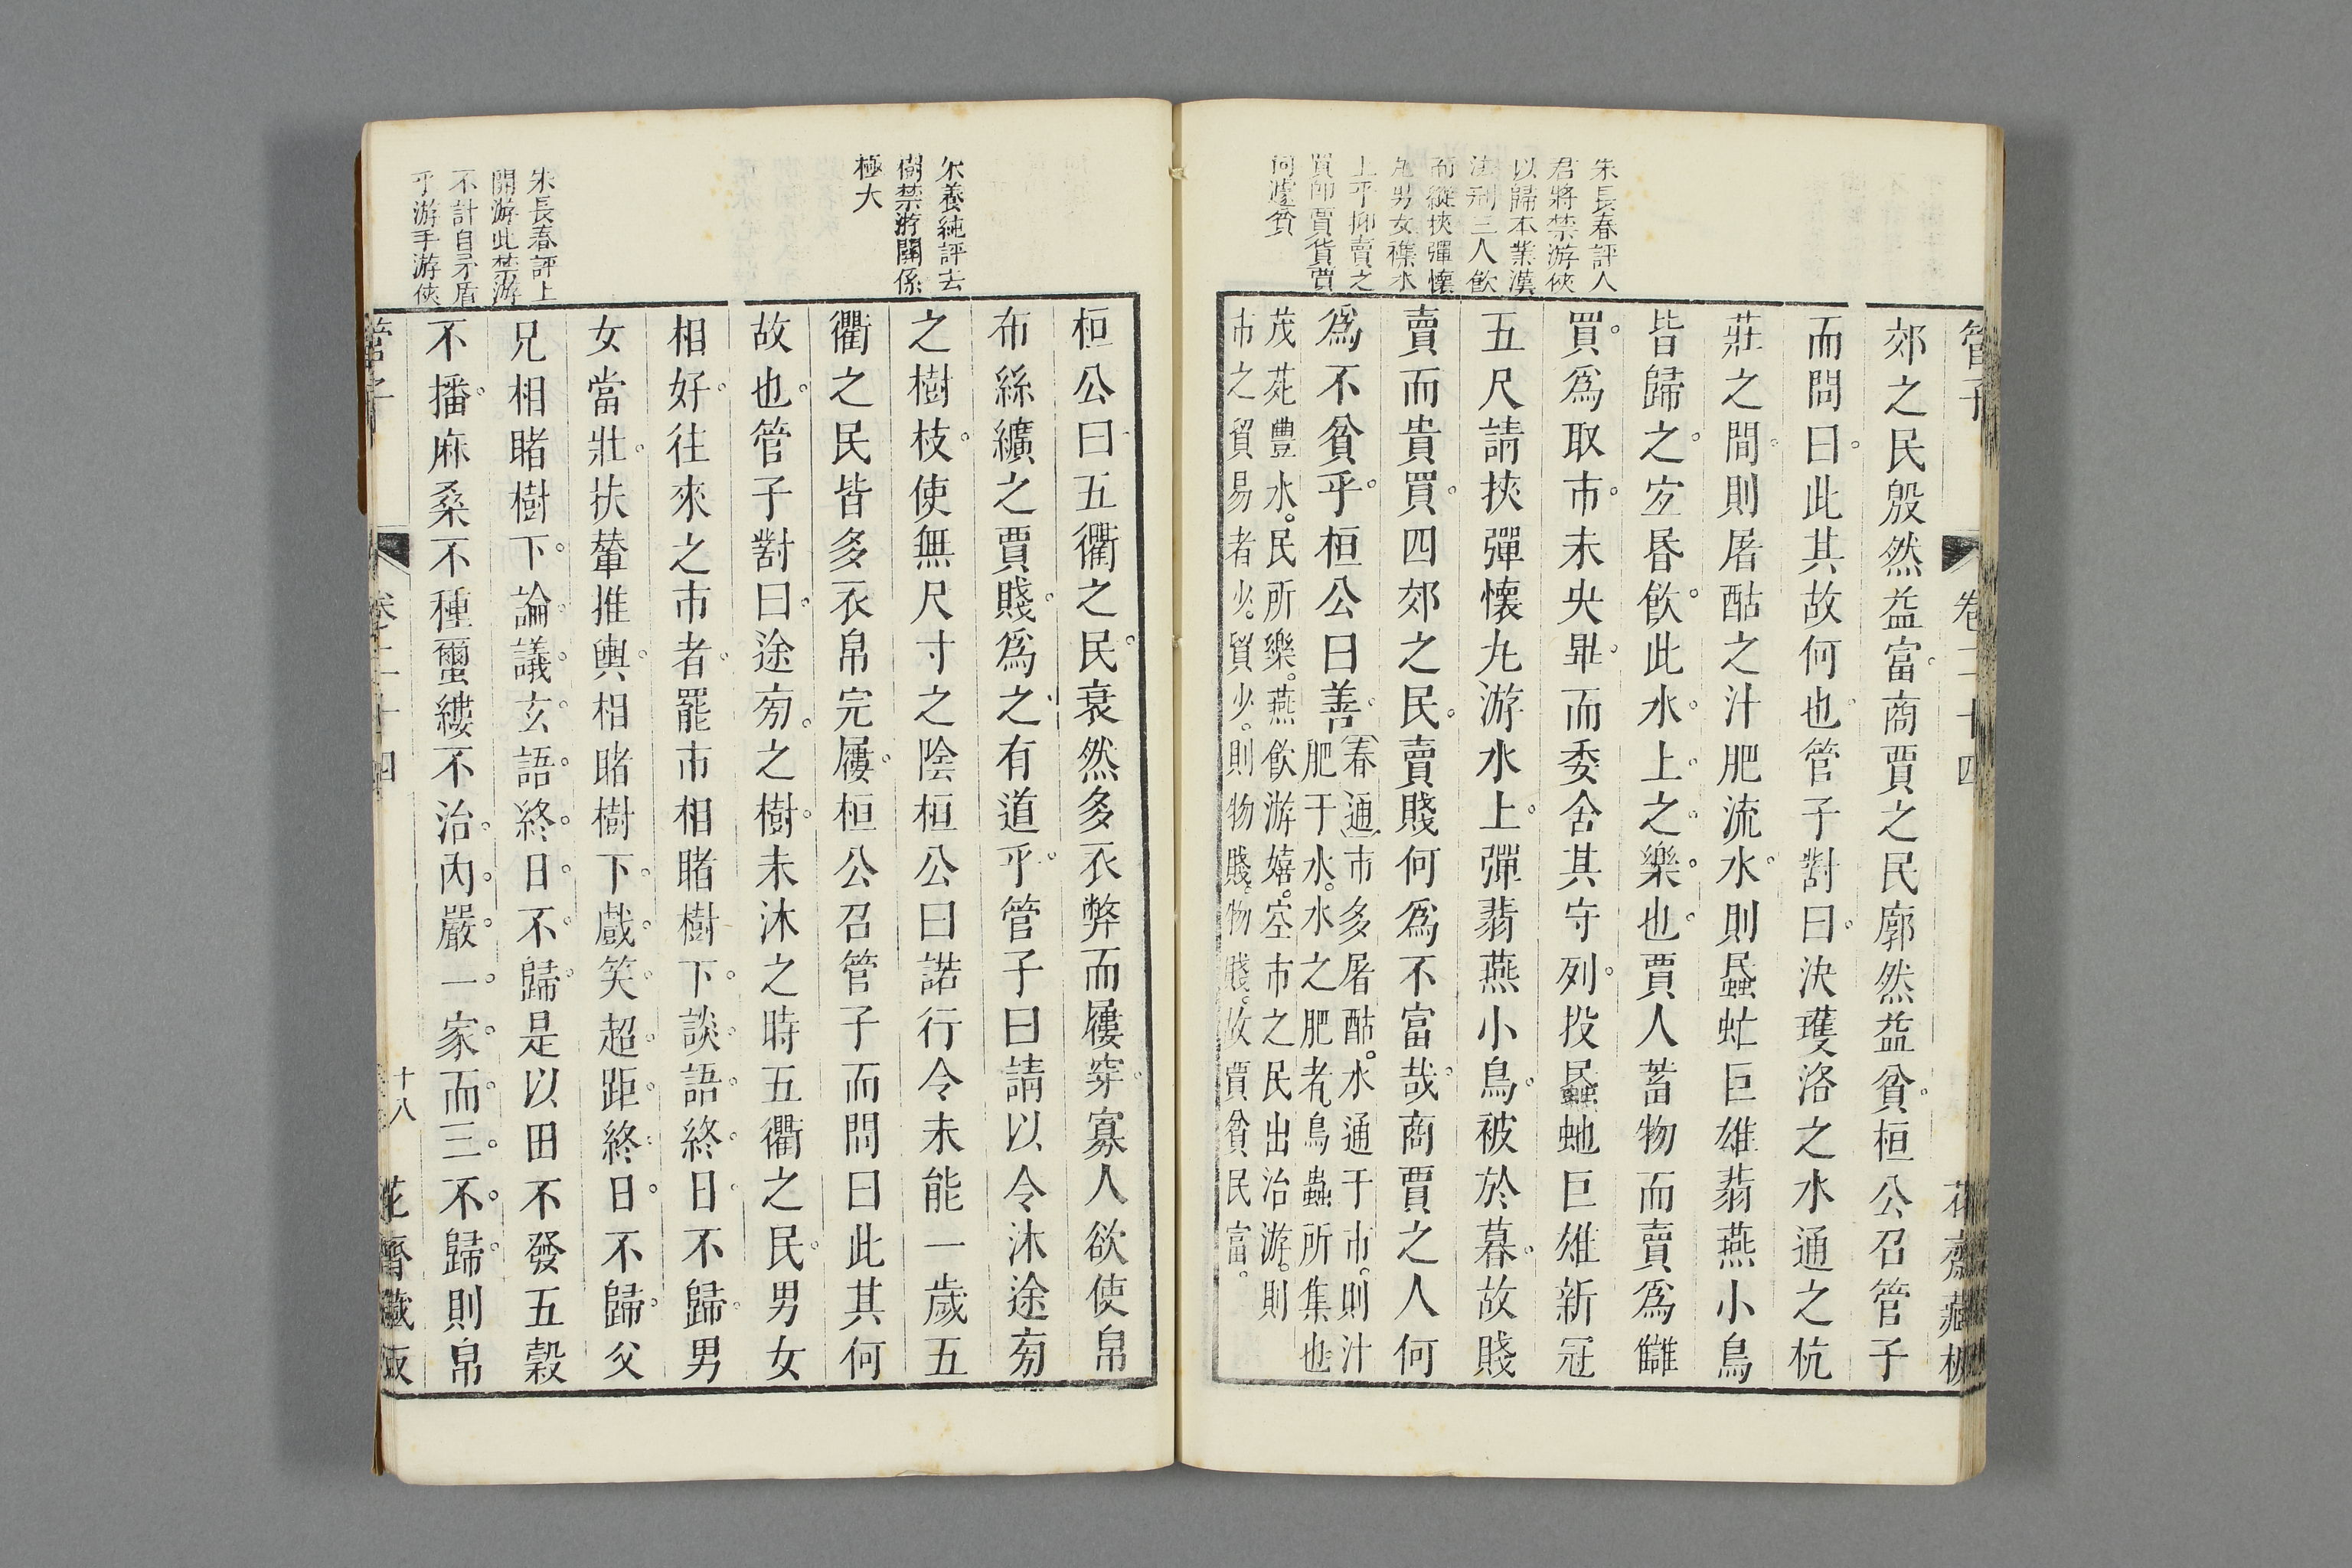 管子
卷二十四
花齋藏板
朱長春評人
君將禁游俠
以歸本業漢
法刑三人飲
而縱挾彈懷
丸男女襍水
上乎抑賣之
買即賈貨賈
何遽貧
郊之民殷然益富商賈之民廓然益貧桓公召管子
而問曰此其故何也管子對曰決瓁洛之水通之杭
莊之間則屠酤之汁肥流水則蟁虻巨雄翡燕小鳥
皆歸之宐昬飲此水上之樂也賈人蓄物而賣爲讎
買爲取市未央畢而委舍其守列投蟁虵巨雄新冠
五尺請挾彈懷丸游水上彈翡燕小鳥被於暮故賤
賣而貴買四郊之民賣賤何爲不富哉商賈之人何
爲不貧乎桓公曰善
春通市多屠酤水通于市則汁
肥于水水之肥者鳥蟲所集也
茂茺豐水民所樂燕飲游嬉空市之民出治游則
市之貿易者少貿少則物賤物賤故賈貧民富
朱養純評去
樹禁游關係
極大
桓公曰五衢之民衰然多衣弊而屨穿寡人欲使帛
布絲纊之賈賤爲之有道乎管子曰請以令沐途旁
之樹枝使無尺寸之陰桓公曰諾行令未能一歲五
衢之民皆多衣帛完屨桓公召管子而問曰此其何
故也管子對曰途旁之樹未沐之時五衢之民男女
相好往來之市者罷市相睹樹下談語終日不歸男
女當壯扶輦推輿相睹樹下戲笑超距終日不歸父
兄相睹樹下論議玄語終日不歸是以田不發五穀
不播麻桑不種璽縷不治內嚴一家而三不歸則帛
朱長春評上
開游此禁游
不計自矛盾
乎游手游俠
管子
卷二十四
十八
花齋藏板